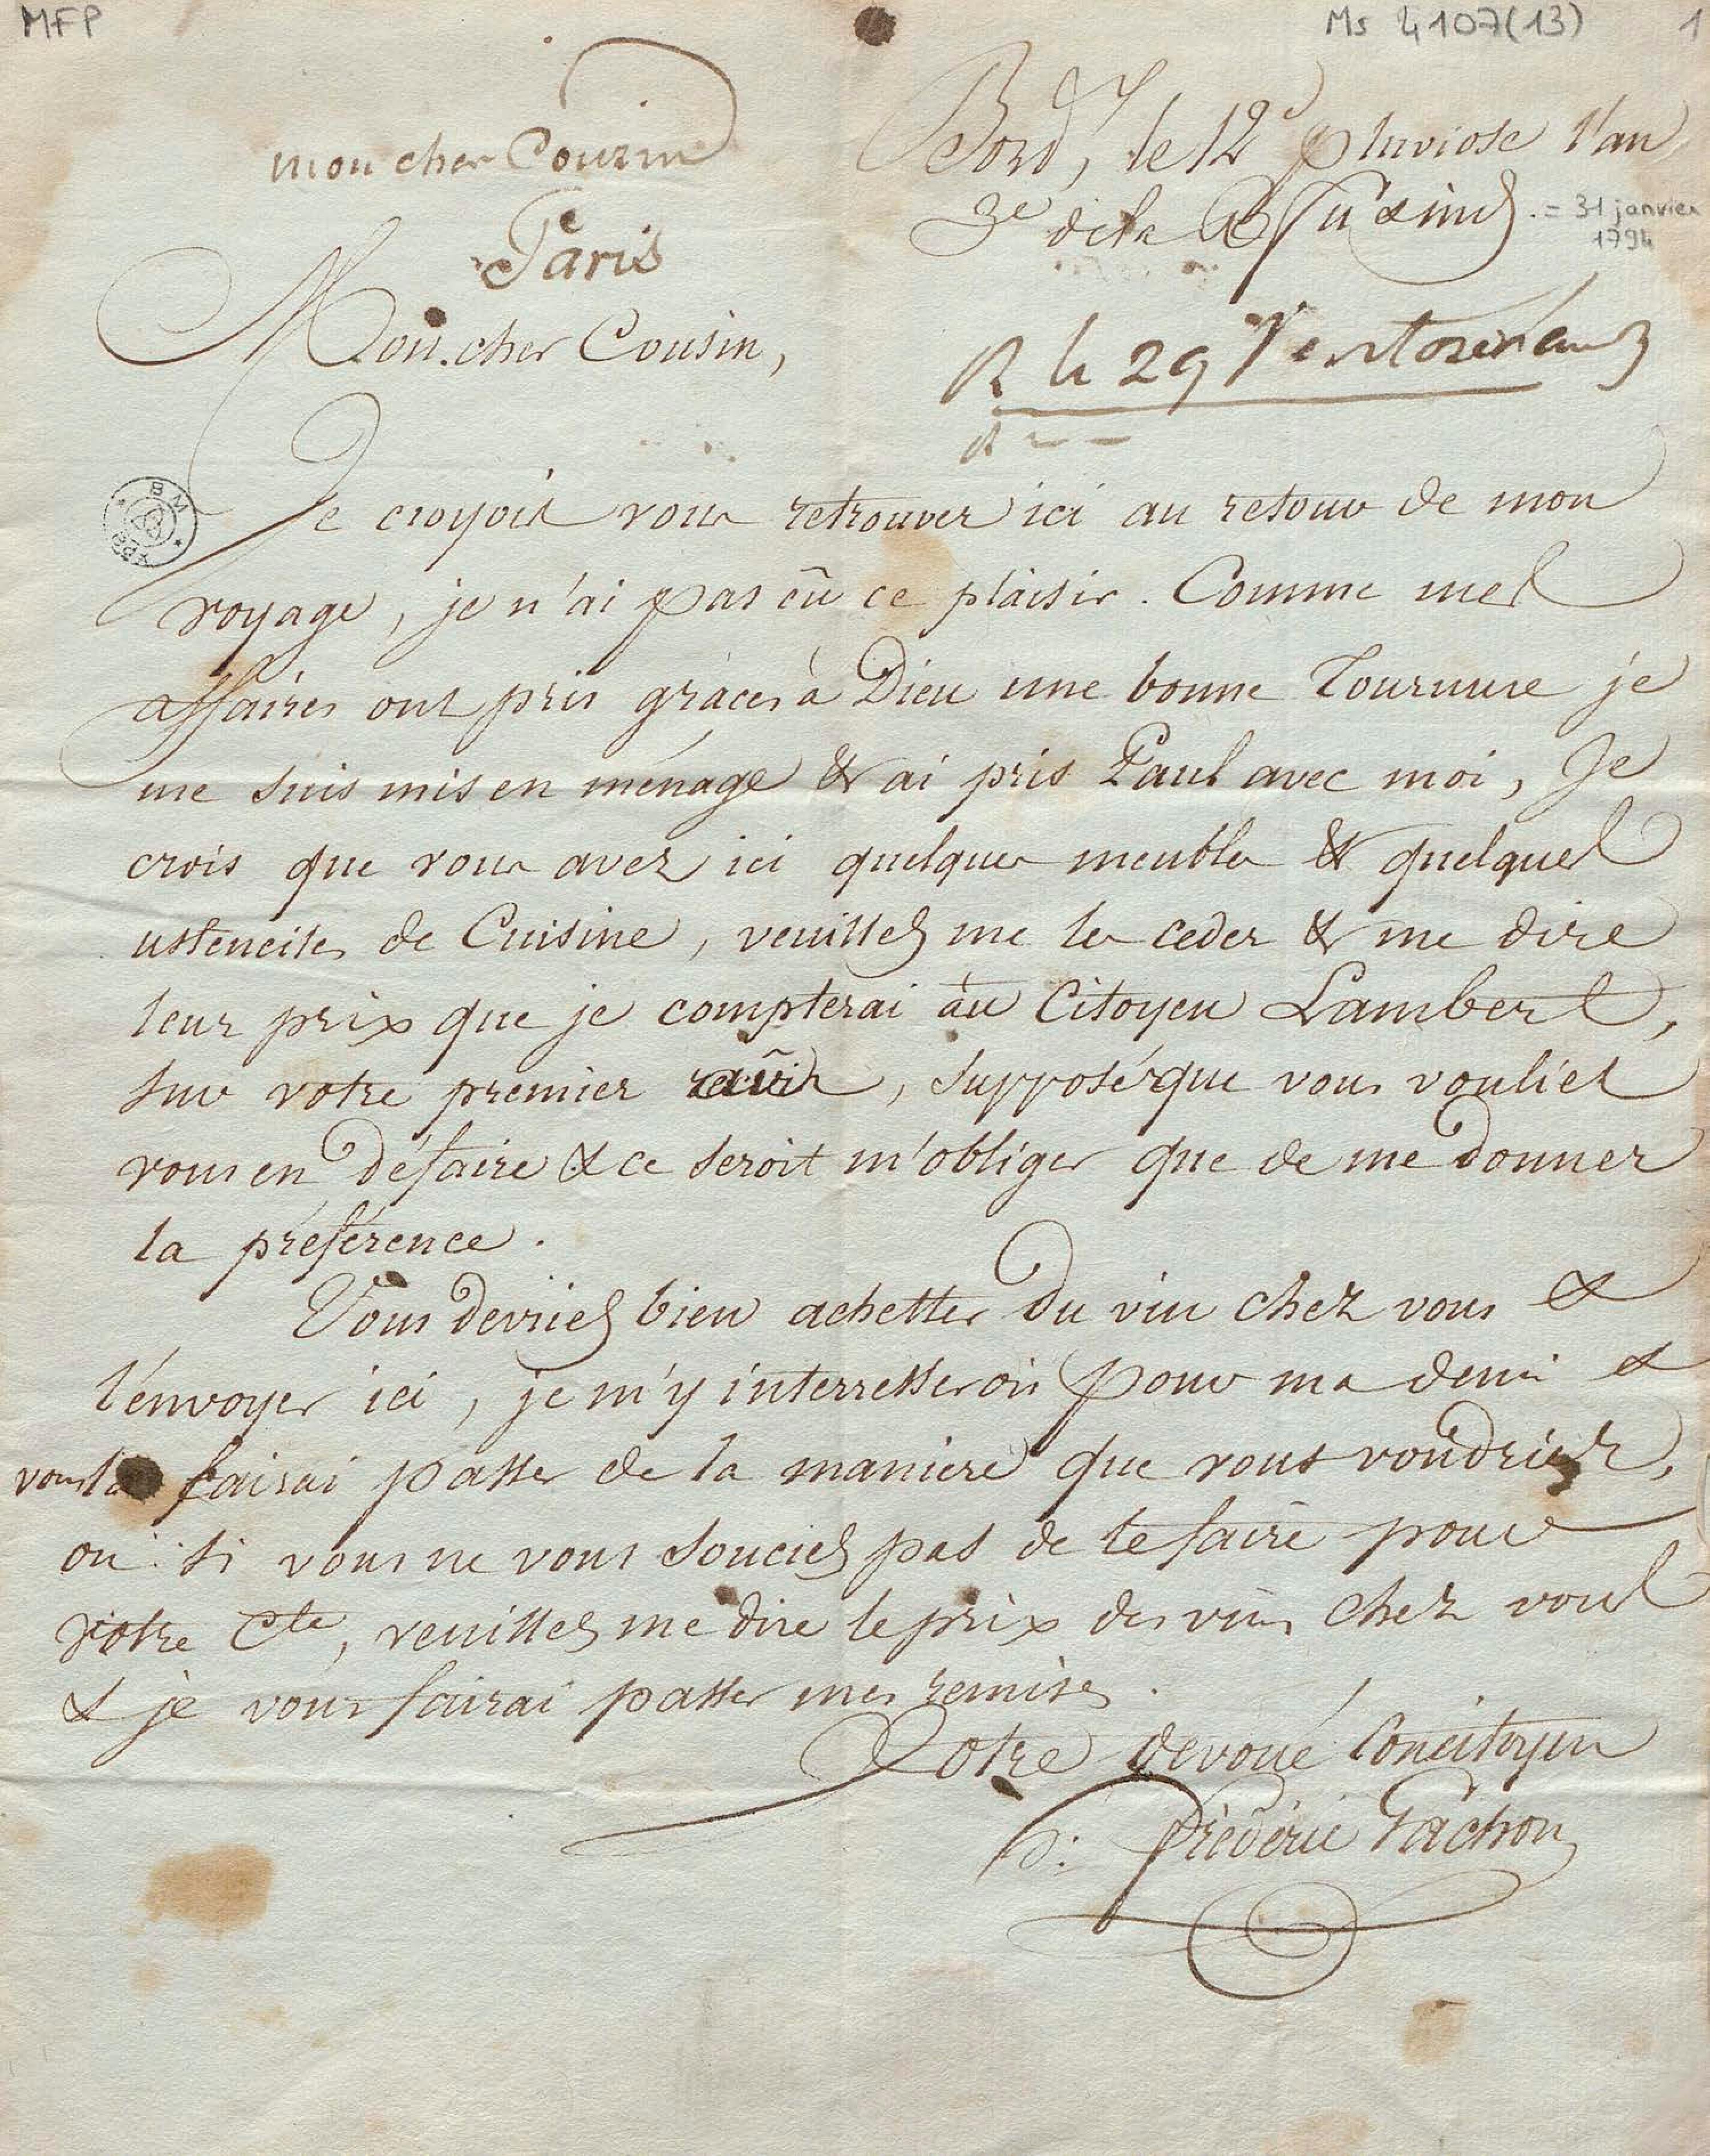 MFP
Ms 4107(13) 1
mon cher Couzin
Paris
Bord, le 12e pluviose l'an
3e de la = 31 janvier
1794
Mon cher Cousin,
R le 29 Ventose an 3
BM
Je croyois vous retrouver ici au retour de mon
voyage, je n'ai pas eû ce plaisir. Comme mes
affaires ont pris graces à Dieu une bonne Tournure je
me suis mis en ménage & ai pris Paul avec moi, Je
crois que vous avez ici quelques meubles & quelques
ustenciles de Cuisine, veuillés me les ceder & me dire
leur prix que je compterai au Citoyen Lambert,
sur votre premier avis, supposé que vous vouliés
vous en défaire & ce seroit m'obliger que de me donner
la préférence.
Vous devriés bien achetter du vin chez vous &
l'envoyer ici, je m'y interresserois pour ma demi &
vous la fairai passer de la maniere que vous voudriez,
ou si vous ne vous souciés pas de le faire pour
votre Cte, veuillés me dire le prix des vins chez vous
& je vous fairai passer mes remises.
Votre devoué Concitoyen
Fréderic Pachon